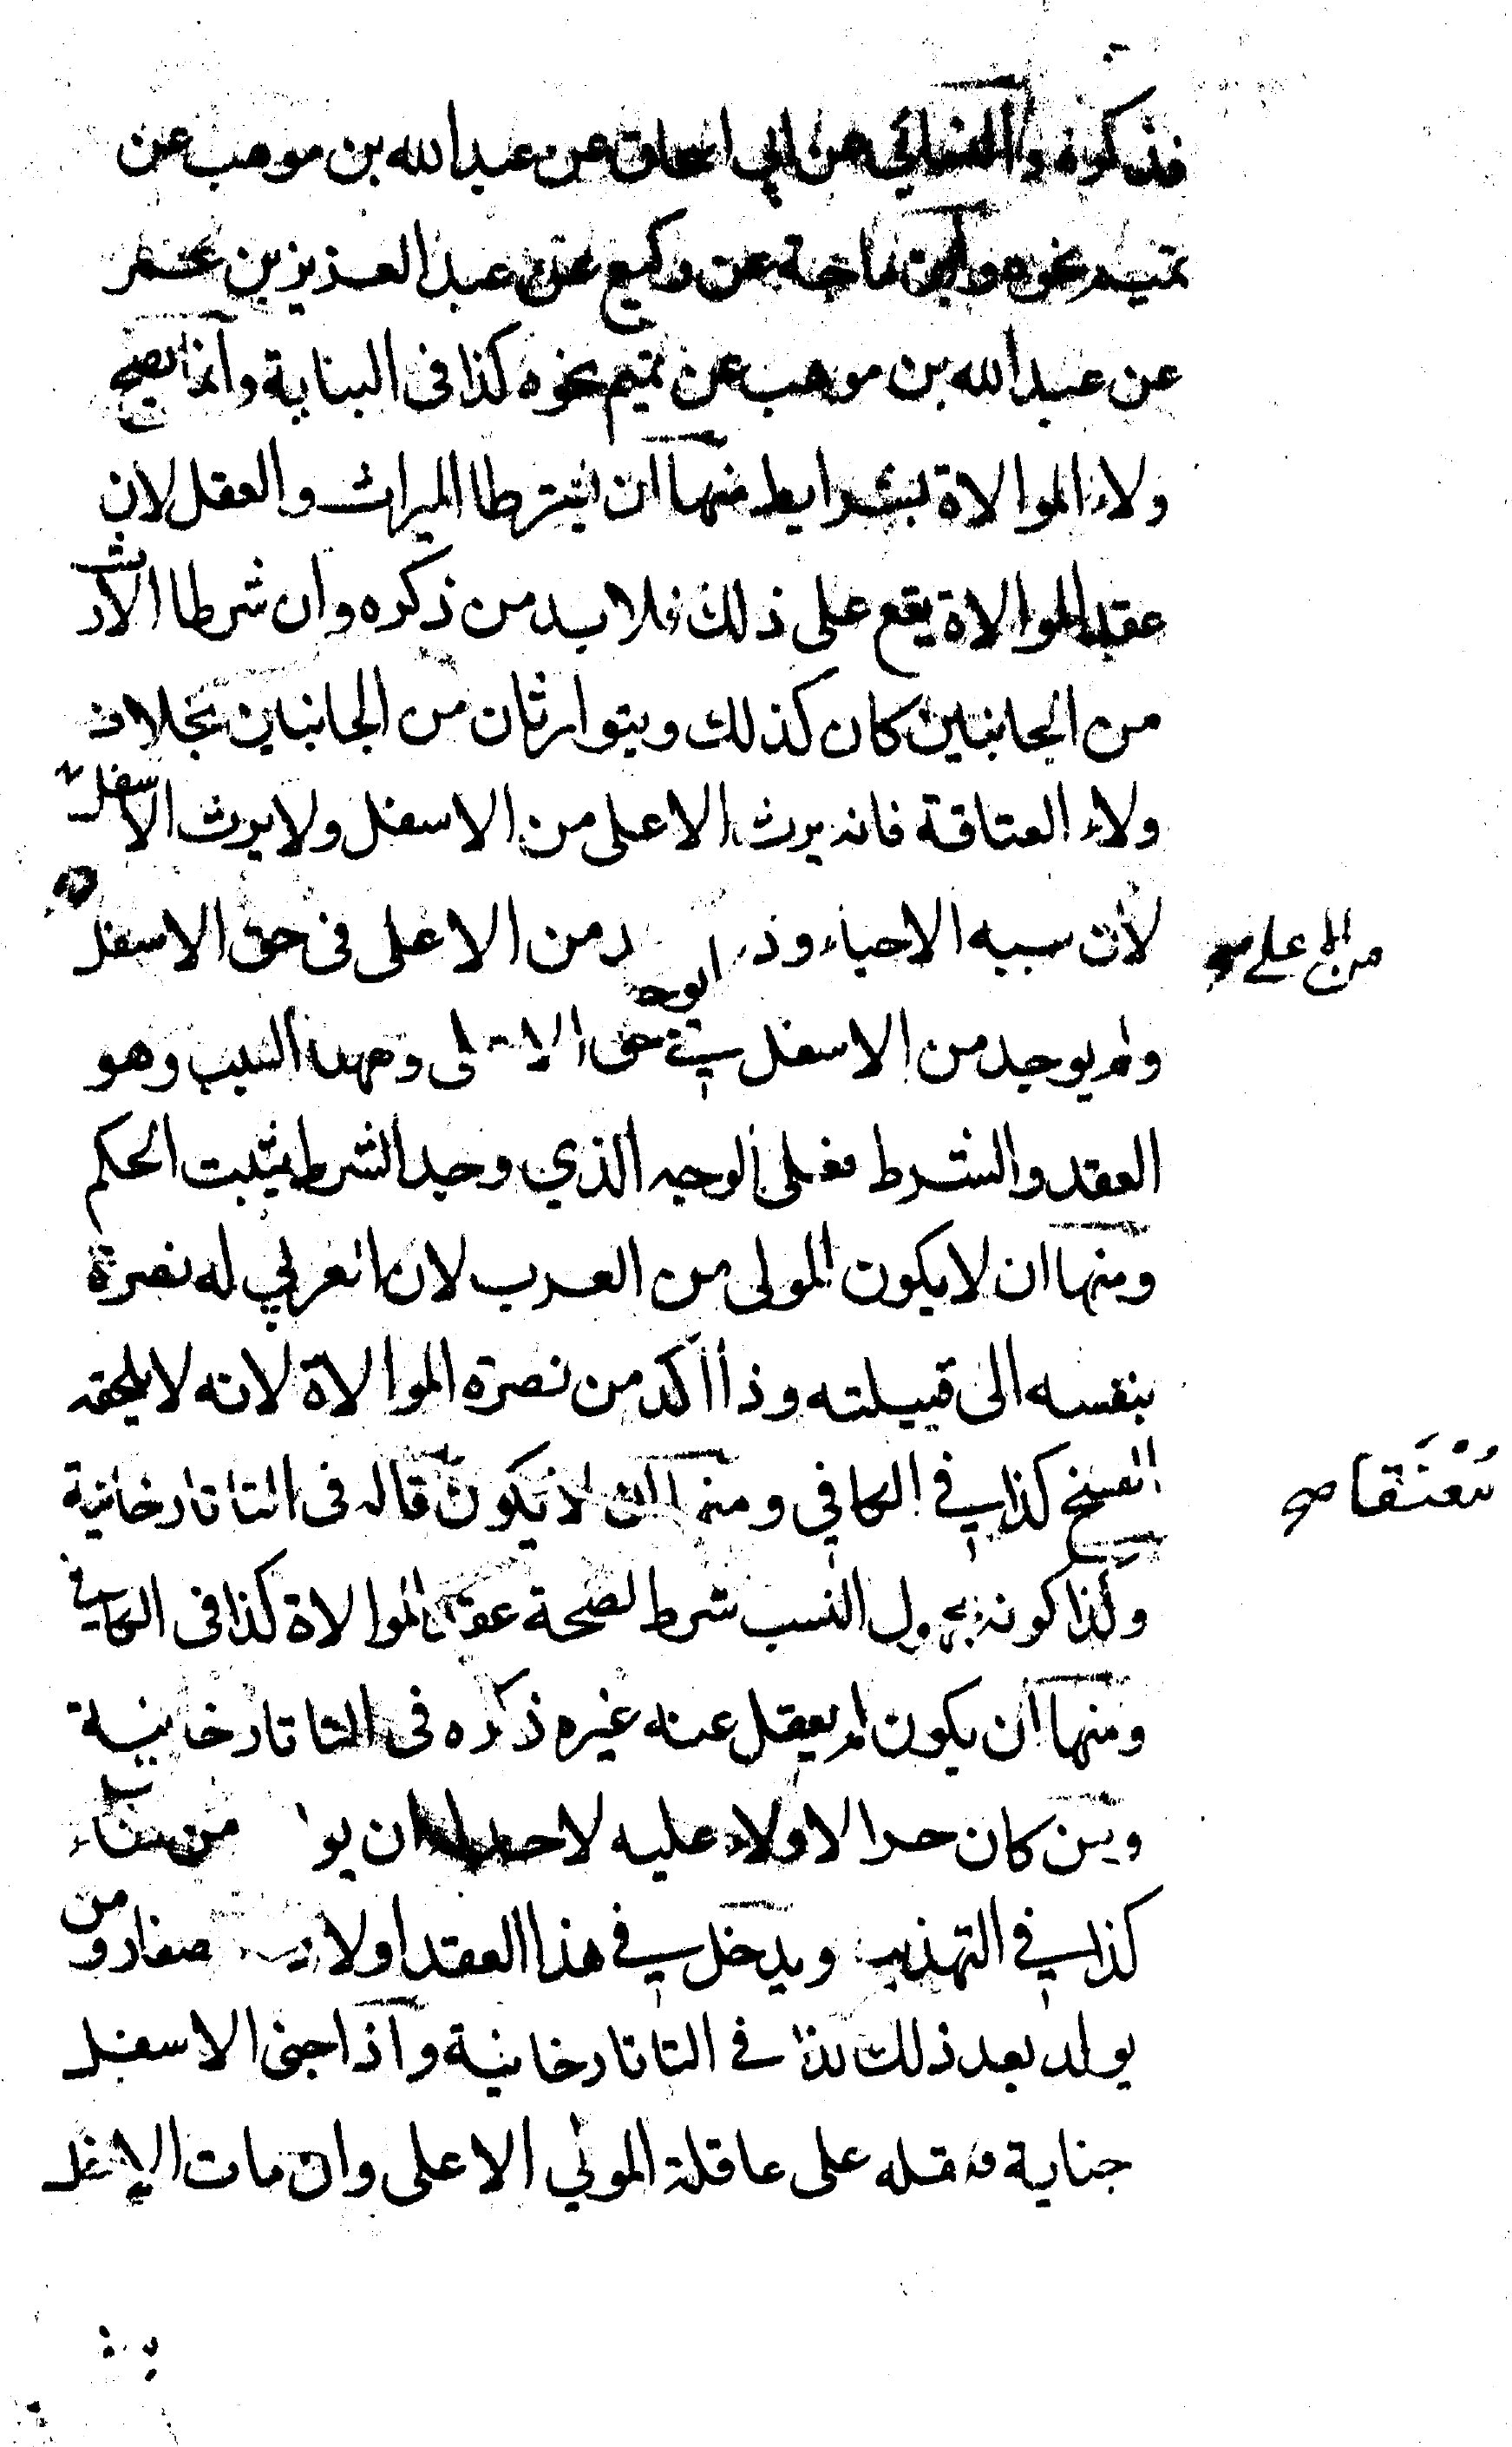 فذكره والنسائي عن ابي اسحاق عن عبد الله بن موهب عن
تميم نحوه وابن ماجة عن وكيع عن عبد العزيز بن عمر
عن عبد الله بن موهب عن تميم نحوه كذا فى البناية وانما يصح
ولاء الموالاة بشرايط منها ان يشترطا الميراث والعقل لان
عقد الموالاة يقع على ذلك فلا بد من ذكره وان شرطا الارث
من الجانبين كان كذلك ويتوارثان من الجانبين بخلاف
ولاء العتاقة فانه يرث الاعلى من الاسفل ولا يرث الاسفل
من الاعلى صح
لان سببه الاحياء وذا يوجد من الاعلى فى حق الاسفل
ولم يوجد من الاسفل في حق الاعلى وههنا السبب وهو
العقد والشرط فعلى الوجه الذي وجد الشرط يثبت الحكم
ومنها ان لا يكون المولى من العرب لان العربي له نصرة
بنفسه الى قبيلته وذا اكد من نصرة الموالاة لانه لا يلحقه
الفسخ كذا في الكافي ومنها ان لا يكون قاله فى التاتارخانية
معتقا صح
وكذا كونه مجهول النسب شرط لصحة عقد الموالاة كذا فى الكافي
ومنها ان يكون لم يعقل عنه غيره ذكره فى التاتارخانية
ومن كان حرا لا ولاء عليه لاحد ان يو من شاء
كذا في التهذيب ويدخل في هذا العقد اولاد صغار ومن
يولد بعد ذلك كذا في التاتارخانية واذا جنى الاسفل
جناية فعقله على عاقلة المولي الاعلى وان مات الاسفل